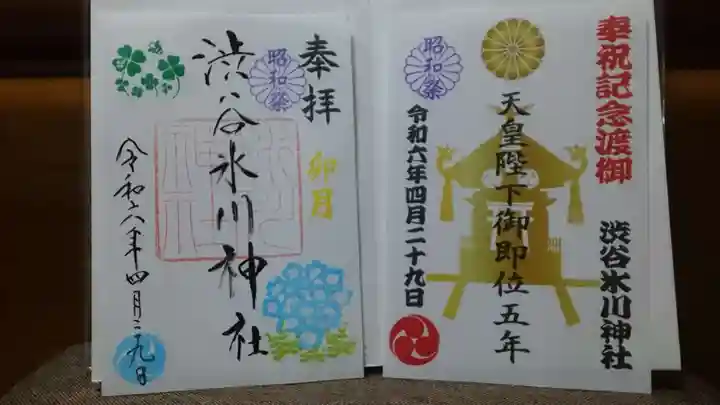 奉祝記念渡御
渋谷氷川神社
天皇陛下御即位五年
昭和祭
令和六年四月二十九日
奉拝
卯月
昭和祭
渋谷氷川神社
令和六年四月二十九日